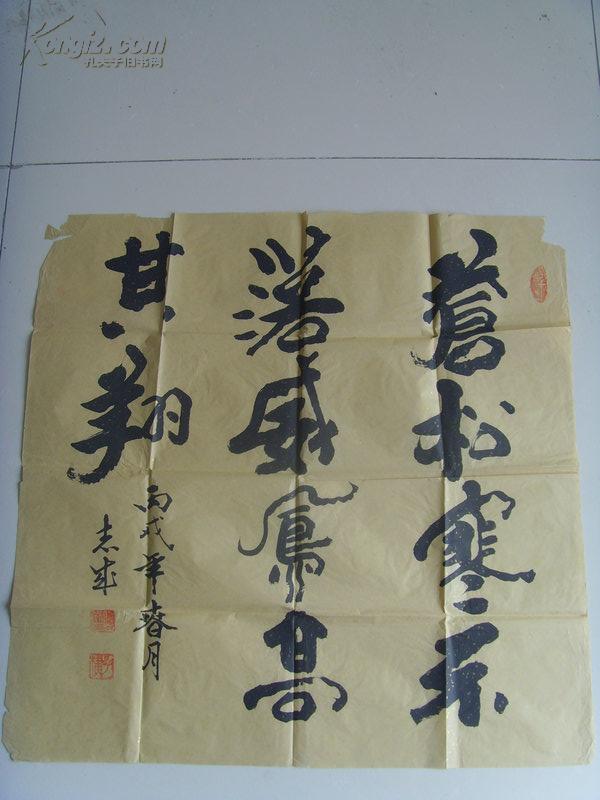 kongfz.com
孔夫子旧书网
蒼松寒不
落威鳳高
其翔
丙戌年春月
志成